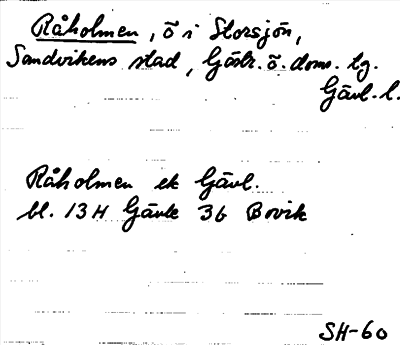 Råholmen, ö i Storsjön,
Sandvikens stad, Gästr. ö. doms. tg.
Gävl. l.
Råholmen ek Gävl.
bl. 13 H Gävle 3 b Bovik
SH-60